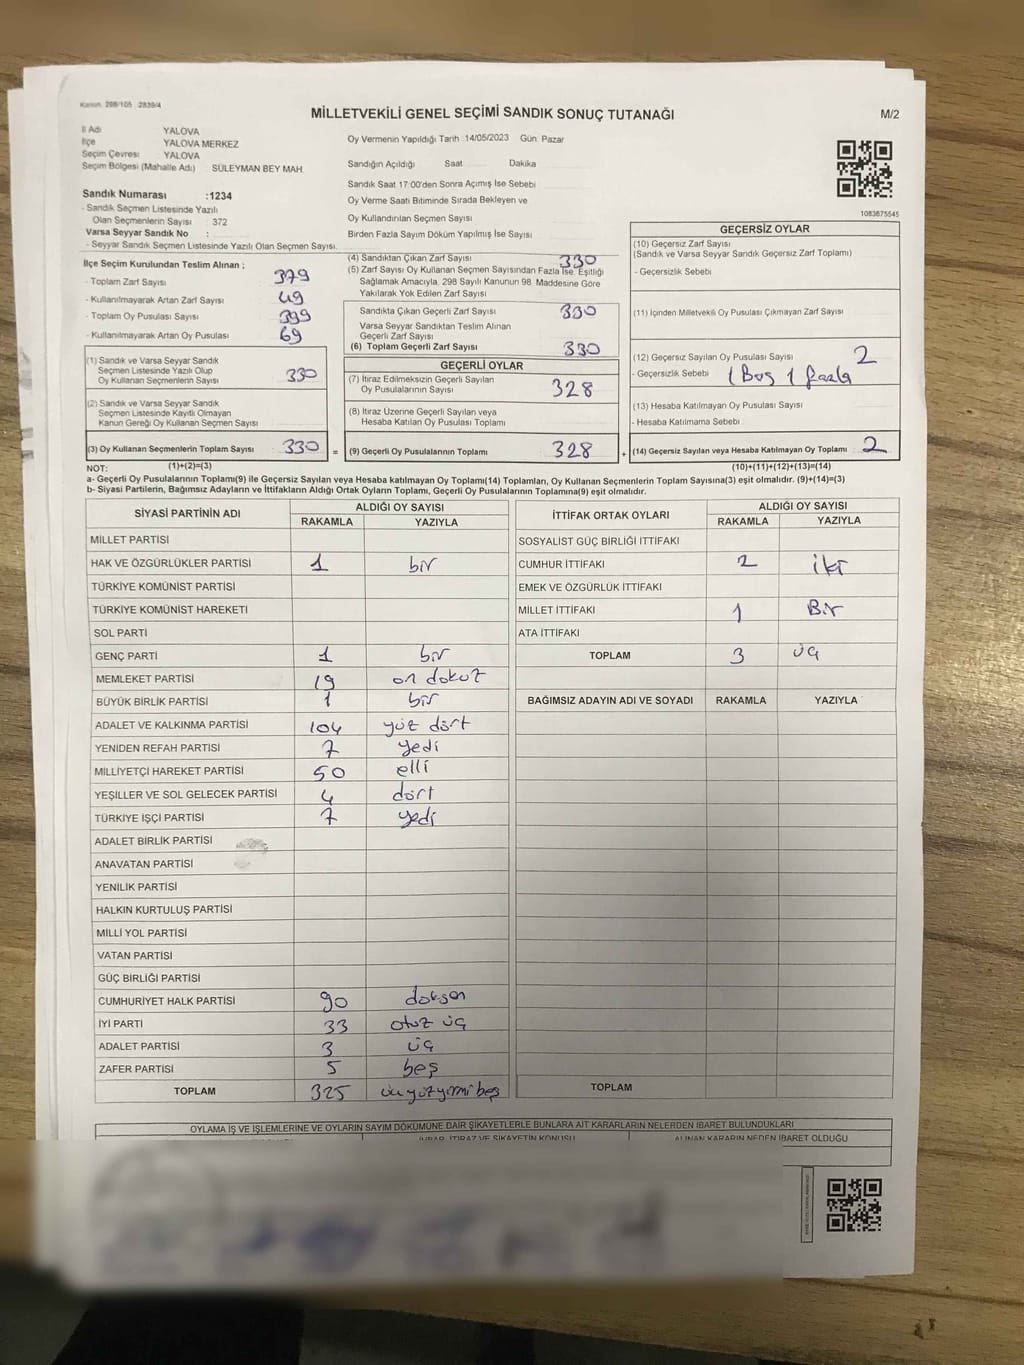 Kanun. 298/105 , 2839/4
MİLLETVEKİLİ GENEL SEÇİMİ SANDIK SONUÇ TUTANAĞI
M/2
İl Adı YALOVA
İlçe YALOVA MERKEZ
Seçim Çevresi YALOVA
Seçim Bölgesi (Mahalle Adı) SÜLEYMAN BEY MAH.
Sandık Numarası :1234
- Sandık Seçmen Listesinde Yazılı
Olan Seçmenlerin Sayısı 372
Varsa Seyyar Sandık No :
- Seyyar Sandık Seçmen Listesinde Yazılı Olan Seçmen Sayısı.
Oy Vermenin Yapıldığı Tarih 14/05/2023 Gün Pazar
Sandığın Açıldığı Saat Dakika
Sandık Saat 17:00'den Sonra Açımış İse Sebebi
Oy Verme Saati Bitiminde Sırada Bekleyen ve
Oy Kullandırılan Seçmen Sayısı
Birden Fazla Sayım Döküm Yapılmış İse Sayısı
1083675545
İlçe Seçim Kurulundan Teslim Alınan ;
- Toplam Zarf Sayısı 379
- Kullanılmayarak Artan Zarf Sayısı 49
- Toplam Oy Pusulası Sayısı 399
- Kullanılmayarak Artan Oy Pusulası 69
(1) Sandık ve Varsa Seyyar Sandık
Seçmen Listesinde Yazılı Olup
Oy Kullanan Seçmenlerin Sayısı 330
(2) Sandık ve Varsa Seyyar Sandık
Seçmen Listesinde Kayıtlı Olmayan
Kanun Gereği Oy Kullanan Seçmen Sayısı
(3) Oy Kullanan Seçmenlerin Toplam Sayısı 330 =
(4) Sandıktan Çıkan Zarf Sayısı 330
(5) Zarf Sayısı Oy Kullanan Seçmen Sayısından Fazla İse, Eşitliği
Sağlamak Amacıyla, 298 Sayılı Kanunun 98. Maddesine Göre
Yakılarak Yok Edilen Zarf Sayısı
Sandıkta Çıkan Geçerli Zarf Sayısı 330
Varsa Seyyar Sandıktan Teslim Alınan
Geçerli Zarf Sayısı
(6) Toplam Geçerli Zarf Sayısı 330
GEÇERLİ OYLAR
(7) İtiraz Edilmeksizin Geçerli Sayılan
Oy Pusulalarının Sayısı 328
(8) İtiraz Üzerine Geçerli Sayılan veya
Hesaba Katılan Oy Pusulası Toplamı
(9) Geçerli Oy Pusulalarının Toplamı 328 +
GEÇERSİZ OYLAR
(10) Geçersiz Zarf Sayısı
(Sandık ve Varsa Seyyar Sandık Geçersiz Zarf Toplamı)
- Geçersizlik Sebebi
(11) İçinden Milletvekili Oy Pusulası Çıkmayan Zarf Sayısı
(12) Geçersiz Sayılan Oy Pusulası Sayısı 2
- Geçersizlik Sebebi 1 Boş 1 fazla
(13) Hesaba Katılmayan Oy Pusulası Sayısı
- Hesaba Katılmama Sebebi
(14) Geçersiz Sayılan veya Hesaba Katılmayan Oy Toplamı 2
NOT: (1)+(2)=(3) (10)+(11)+(12)+(13)=(14)
a- Geçerli Oy Pusulalarının Toplamı(9) ile Geçersiz Sayılan veya Hesaba Katılmayan Oy Toplamı(14) Toplamları, Oy Kullanan Seçmenlerin Toplam Sayısına(3) eşit olmalıdır. (9)+(14)=(3)
b- Siyasi Partilerin, Bağımsız Adayların ve İttifakların Aldığı Ortak Oyların Toplamı, Geçerli Oy Pusulalarının Toplamına(9) eşit olmalıdır.
SİYASİ PARTİNİN ADI ALDIĞI OY SAYISI
RAKAMLA YAZIYLA
MİLLET PARTİSİ
HAK VE ÖZGÜRLÜKLER PARTİSİ 1 bir
TÜRKİYE KOMÜNİST PARTİSİ
TÜRKİYE KOMÜNİST HAREKETİ
SOL PARTİ
GENÇ PARTİ 1 bir
MEMLEKET PARTİSİ 19 on dokuz
BÜYÜK BİRLİK PARTİSİ 1 bir
ADALET VE KALKINMA PARTİSİ 104 yüz dört
YENİDEN REFAH PARTİSİ 7 yedi
MİLLİYETÇİ HAREKET PARTİSİ 50 elli
YEŞİLLER VE SOL GELECEK PARTİSİ 4 dört
TÜRKİYE İŞÇİ PARTİSİ 7 yedi
ADALET BİRLİK PARTİSİ
ANAVATAN PARTİSİ
YENİLİK PARTİSİ
HALKIN KURTULUŞ PARTİSİ
MİLLİ YOL PARTİSİ
VATAN PARTİSİ
GÜÇ BİRLİĞİ PARTİSİ
CUMHURİYET HALK PARTİSİ 90 doksan
İYİ PARTİ 33 otuz üç
ADALET PARTİSİ 3 üç
ZAFER PARTİSİ 5 beş
TOPLAM 325 üçyüzyirmi beş
İTTİFAK ORTAK OYLARI ALDIĞI OY SAYISI
RAKAMLA YAZIYLA
SOSYALIST GÜÇ BİRLİĞİ İTTİFAKI
CUMHUR İTTİFAKI 2 iki
EMEK VE ÖZGÜRLÜK İTTİFAKI
MİLLET İTTİFAKI 1 Bir
ATA İTTİFAKI
TOPLAM 3 üç
BAĞIMSIZ ADAYIN ADI VE SOYADI RAKAMLA YAZIYLA
TOPLAM
OYLAMA İŞ VE İŞLEMLERİNE VE OYLARIN SAYIM DÖKÜMÜNE DAİR ŞİKAYETLERLE BUNLARA AİT KARARLARIN NELERDEN İBARET BULUNDUKLARI
İHBAR, İTİRAZ VE ŞİKAYETİN KONUSU ALINAN KARARIN NEDEN İBARET OLDUĞU